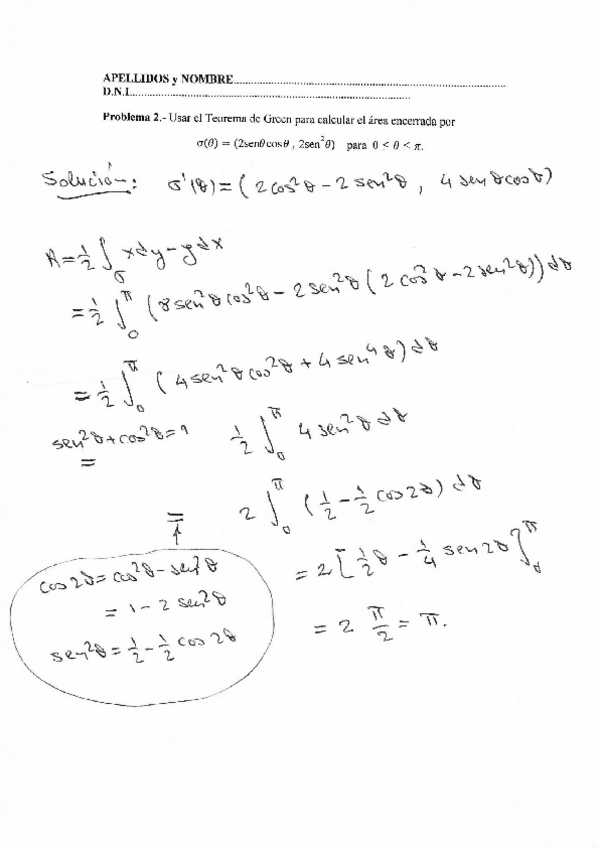 APELLIDOS y NOMBRE
D.N.I.
Problema 2.- Usar el Teorema de Green para calcular el área encerrada por
σ(θ) = (2senθcosθ , 2sen²θ) para 0 < θ < π.
Solución: σ'(θ)=(2cos²θ - 2sen²θ , 4senθcosθ)
A=½∫σ xdy-ydx
=½∫₀^π (8sen²θcos²θ - 2sen²θ(2cos²θ-2sen²θ))dθ
=½∫₀^π (4sen²θcos²θ+4sen⁴θ)dθ
sen²θ+cos²θ=1
= ½∫₀^π 4sen²θdθ
= 2∫₀^π (½-½cos2θ)dθ
= 2[½θ - ¼sen2θ]₀^π
= 2 π/2 = π.
cos2θ=cos²θ-sen²θ
= 1-2sen²θ
sen²θ=½-½cos2θ